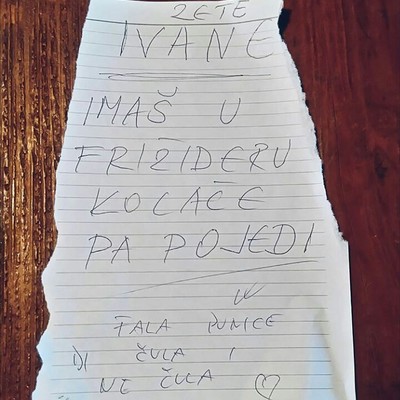 ZETE
IVANE
IMAŠ U
FRIŽIDERU
KOLAČE
PA POJEDI
FALA PUNICE
DI ČULA I
NE ČULA ♡